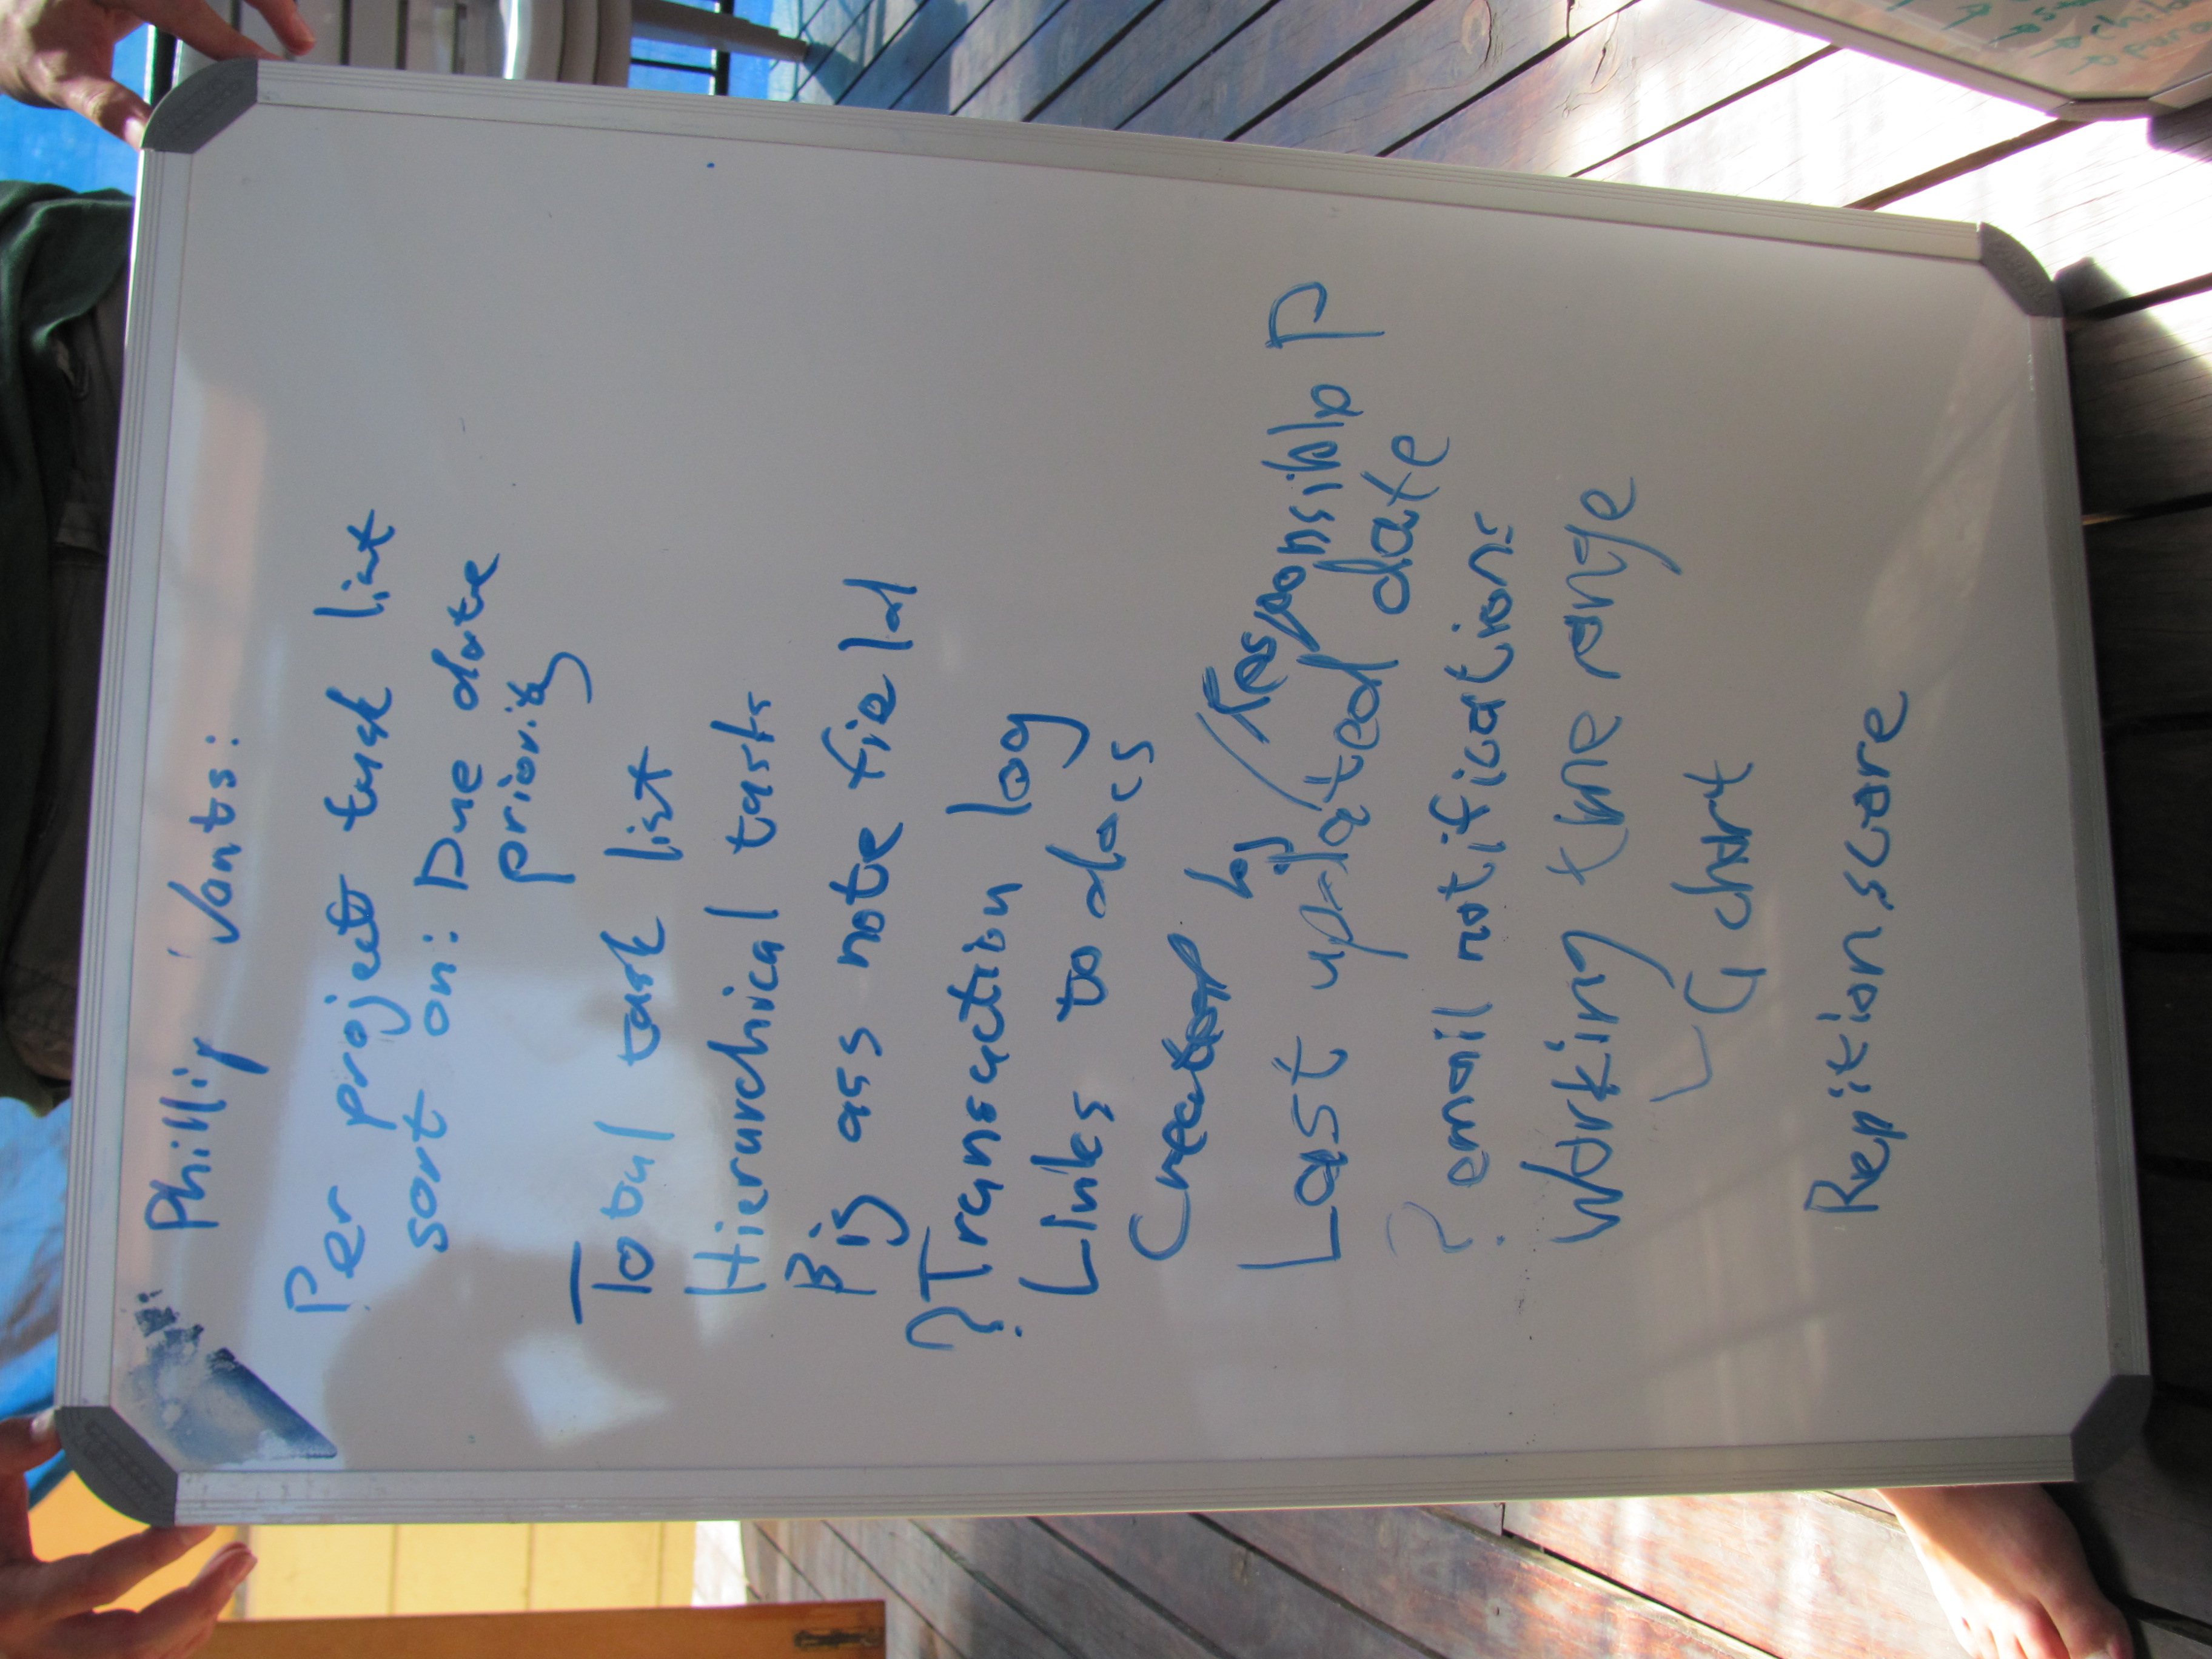 Phillip Wants:
Per project task list
sort on: Due date
priority
Total task list
Hierarchical tasks
Big ass note field
? Transaction log
Links to docs
Created by / Responsible P
Last updated date
? email notifications
Working time range
G chart
Repition score